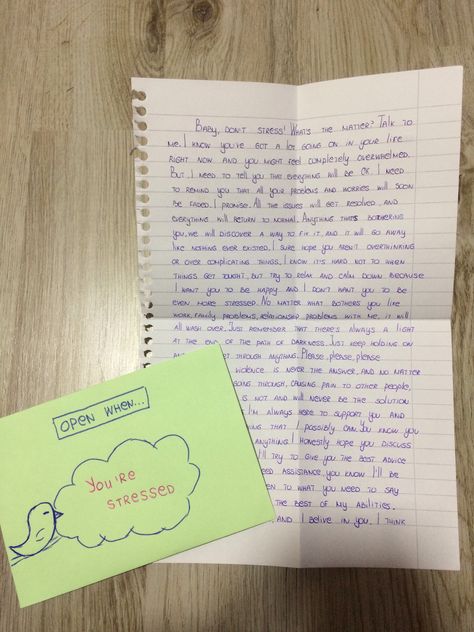 Baby, don't stress! What's the matter? Talk to
me. I know you've got a lot going on in your life
right now and you might feel completely overwhelmed.
But I need to tell you that everything will be ok. I need
to remind you that all your problems and worries will soon
be faded. I promise. All the issues will get resolved, and
everything will return to normal. Anything that's bothering
you, we will discover a way to fix it, and it will go away
like nothing ever existed. I sure hope you aren't overthinking
or over complicating things. I know it's hard not to when
things get tought, but try to relax and calm down because
I want you to be happy and I don't want you to be
even more stressed. No matter what bothers you like
work, family problems, relationship problems with me, it will
all wash over. Just remember that there's always a light
at the end of the path of darkness. Just keep holding on
through anything. Please, please, please
violence is never the answer, and no matter
going through, causing pain to other people,
is not and will never be the solution
I'm always here to support you and
that I possibly can. You know you
anything. I honestly hope you discuss
I'll try to give you the best advice
assistance you know I'll be
to what you need to say
the best of my abilities.
and I belive in you. I think
OPEN WHEN...
You're
STRESSED